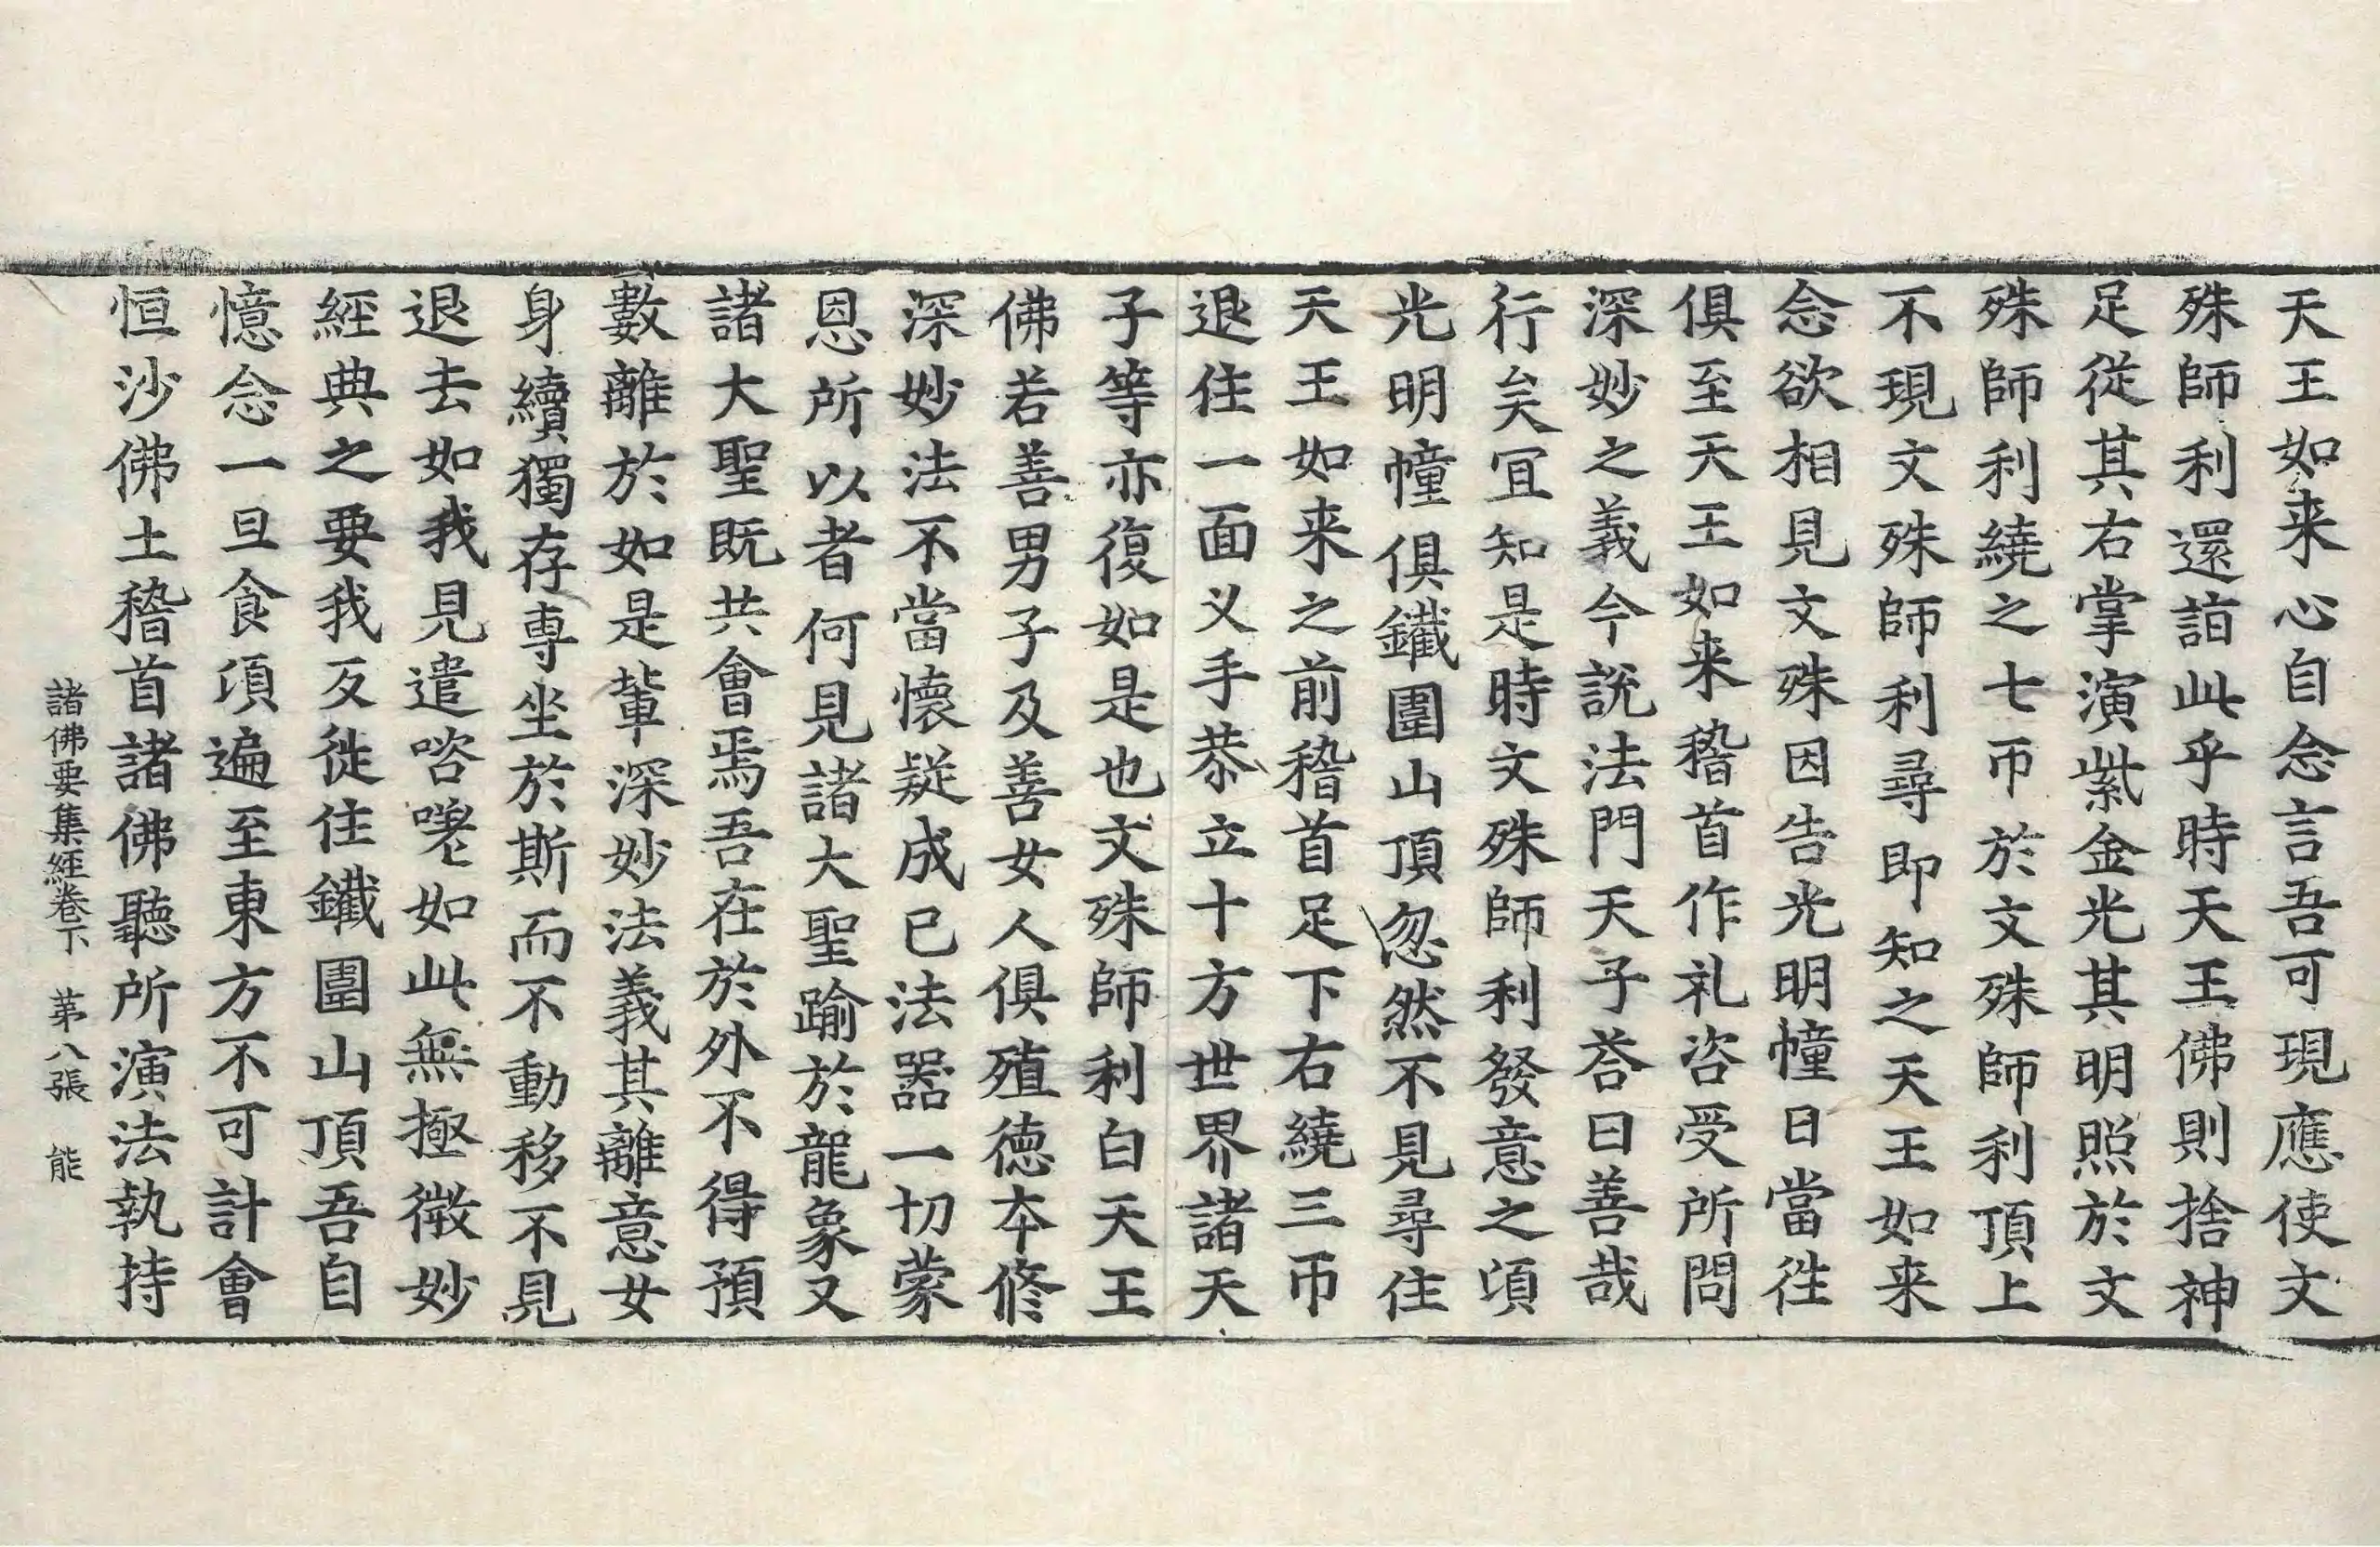 天王如来心自念言吾可現應使文
殊師利還詣此乎時天王佛則捨神
足從其右掌演紫金光其明照於文
殊師利繞之七帀於文殊師利頂上
不現文殊師利尋即知之天王如来
念欲相見文殊因告光明幢曰當往
俱至天王如来稽首作礼咨受所問
深妙之義今說法門天子荅曰善哉
行矣冝知是時文殊師利發意之頃
光明幢俱鐵圍山頂忽然不見尋住
天王如来之前稽首足下右繞三帀
退住一面叉手恭立十方世界諸天
子等亦復如是也文殊師利白天王
佛若善男子及善女人俱殖德本修
深妙法不當懷疑成已法器一切蒙
恩所以者何見諸大聖踰於龍象又
諸大聖既共會焉吾在於外不得預
數離於如是輩深妙法義其離意女
身續獨存專坐於斯而不動移不見
退去如我見遣咨嗟如此無極微妙
經典之要我反徙住鐵圍山頂吾自
憶念一旦食頃遍至東方不可計會
恒沙佛土稽首諸佛聽所演法執持
諸佛要集經卷下 苐八張 能